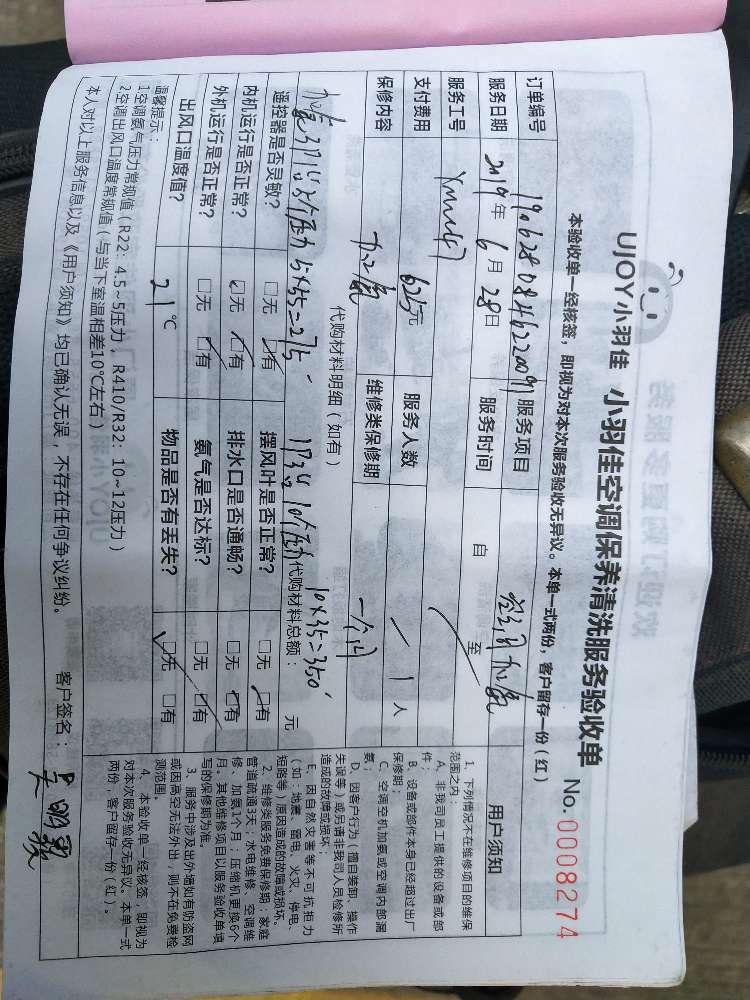 UJOY小羽佳 小羽佳空调保养清洗服务验收单 No.0008274
本验收单一经核签，即视为对本次服务验收无异议。本单一式两份，客户留存一份（红）
订单编号 服务项目 空调加氨
服务日期 2019年6月28日 服务时间 自 至
服务工号
支付费用 625元 服务人数 1人
保修内容 加氨 维修类保修期 一个月
代购材料明细（如有）
10×35=350
代购材料总额： 元
遥控器是否灵敏？ □无 □有 摆风叶是否正常？ □无 □有
内机运行是否正常？ □无 □有 排水口是否通畅？ □无 □有
外机运行是否正常？ □无 □有 氨气是否达标？ □无 □有
出风口温度值？ 21℃ 物品是否有丢失？ □无 □有
温馨提示：
1空调氨气压力常规值（R22：4.5~5压力，R410/R32：10~12压力）
2空调出风口温度常规值（与当下室温相差10℃左右）
本人对以上服务信息以及《用户须知》均已确认无误，不存在任何争议纠纷。 客户签名：
用户须知
1、下列情况不在维修项目的维保
范围之内：
A、非我司员工提供的设备或部
件；
B、设备或部件本身已经超过出厂
保修期；
C、空调空机加氨或空调内部漏
氨；
D、因客户行为（擅自装卸、操作
失误等）或另请非我司人员检修所
造成的故障或损坏；
E、因自然灾害等不可抗拒力
（如：地震、雷电、火灾、停电、
短路等）原因造成的故障或损坏。
2、维修类服务免费保修期：家庭
管道疏通3天；水电维修、空调维
修、加氨1个月；压缩机更换6个
月。其他维修项目以服务验收单填
写的保修期为准。
3、服务中涉及出外墙如有防盗网
或因高空无法外出，则不在免费检
测范围。
4、本验收单一经核签，即视为
对本次服务验收无异议。本单一式
两份，客户留存一份（红）。